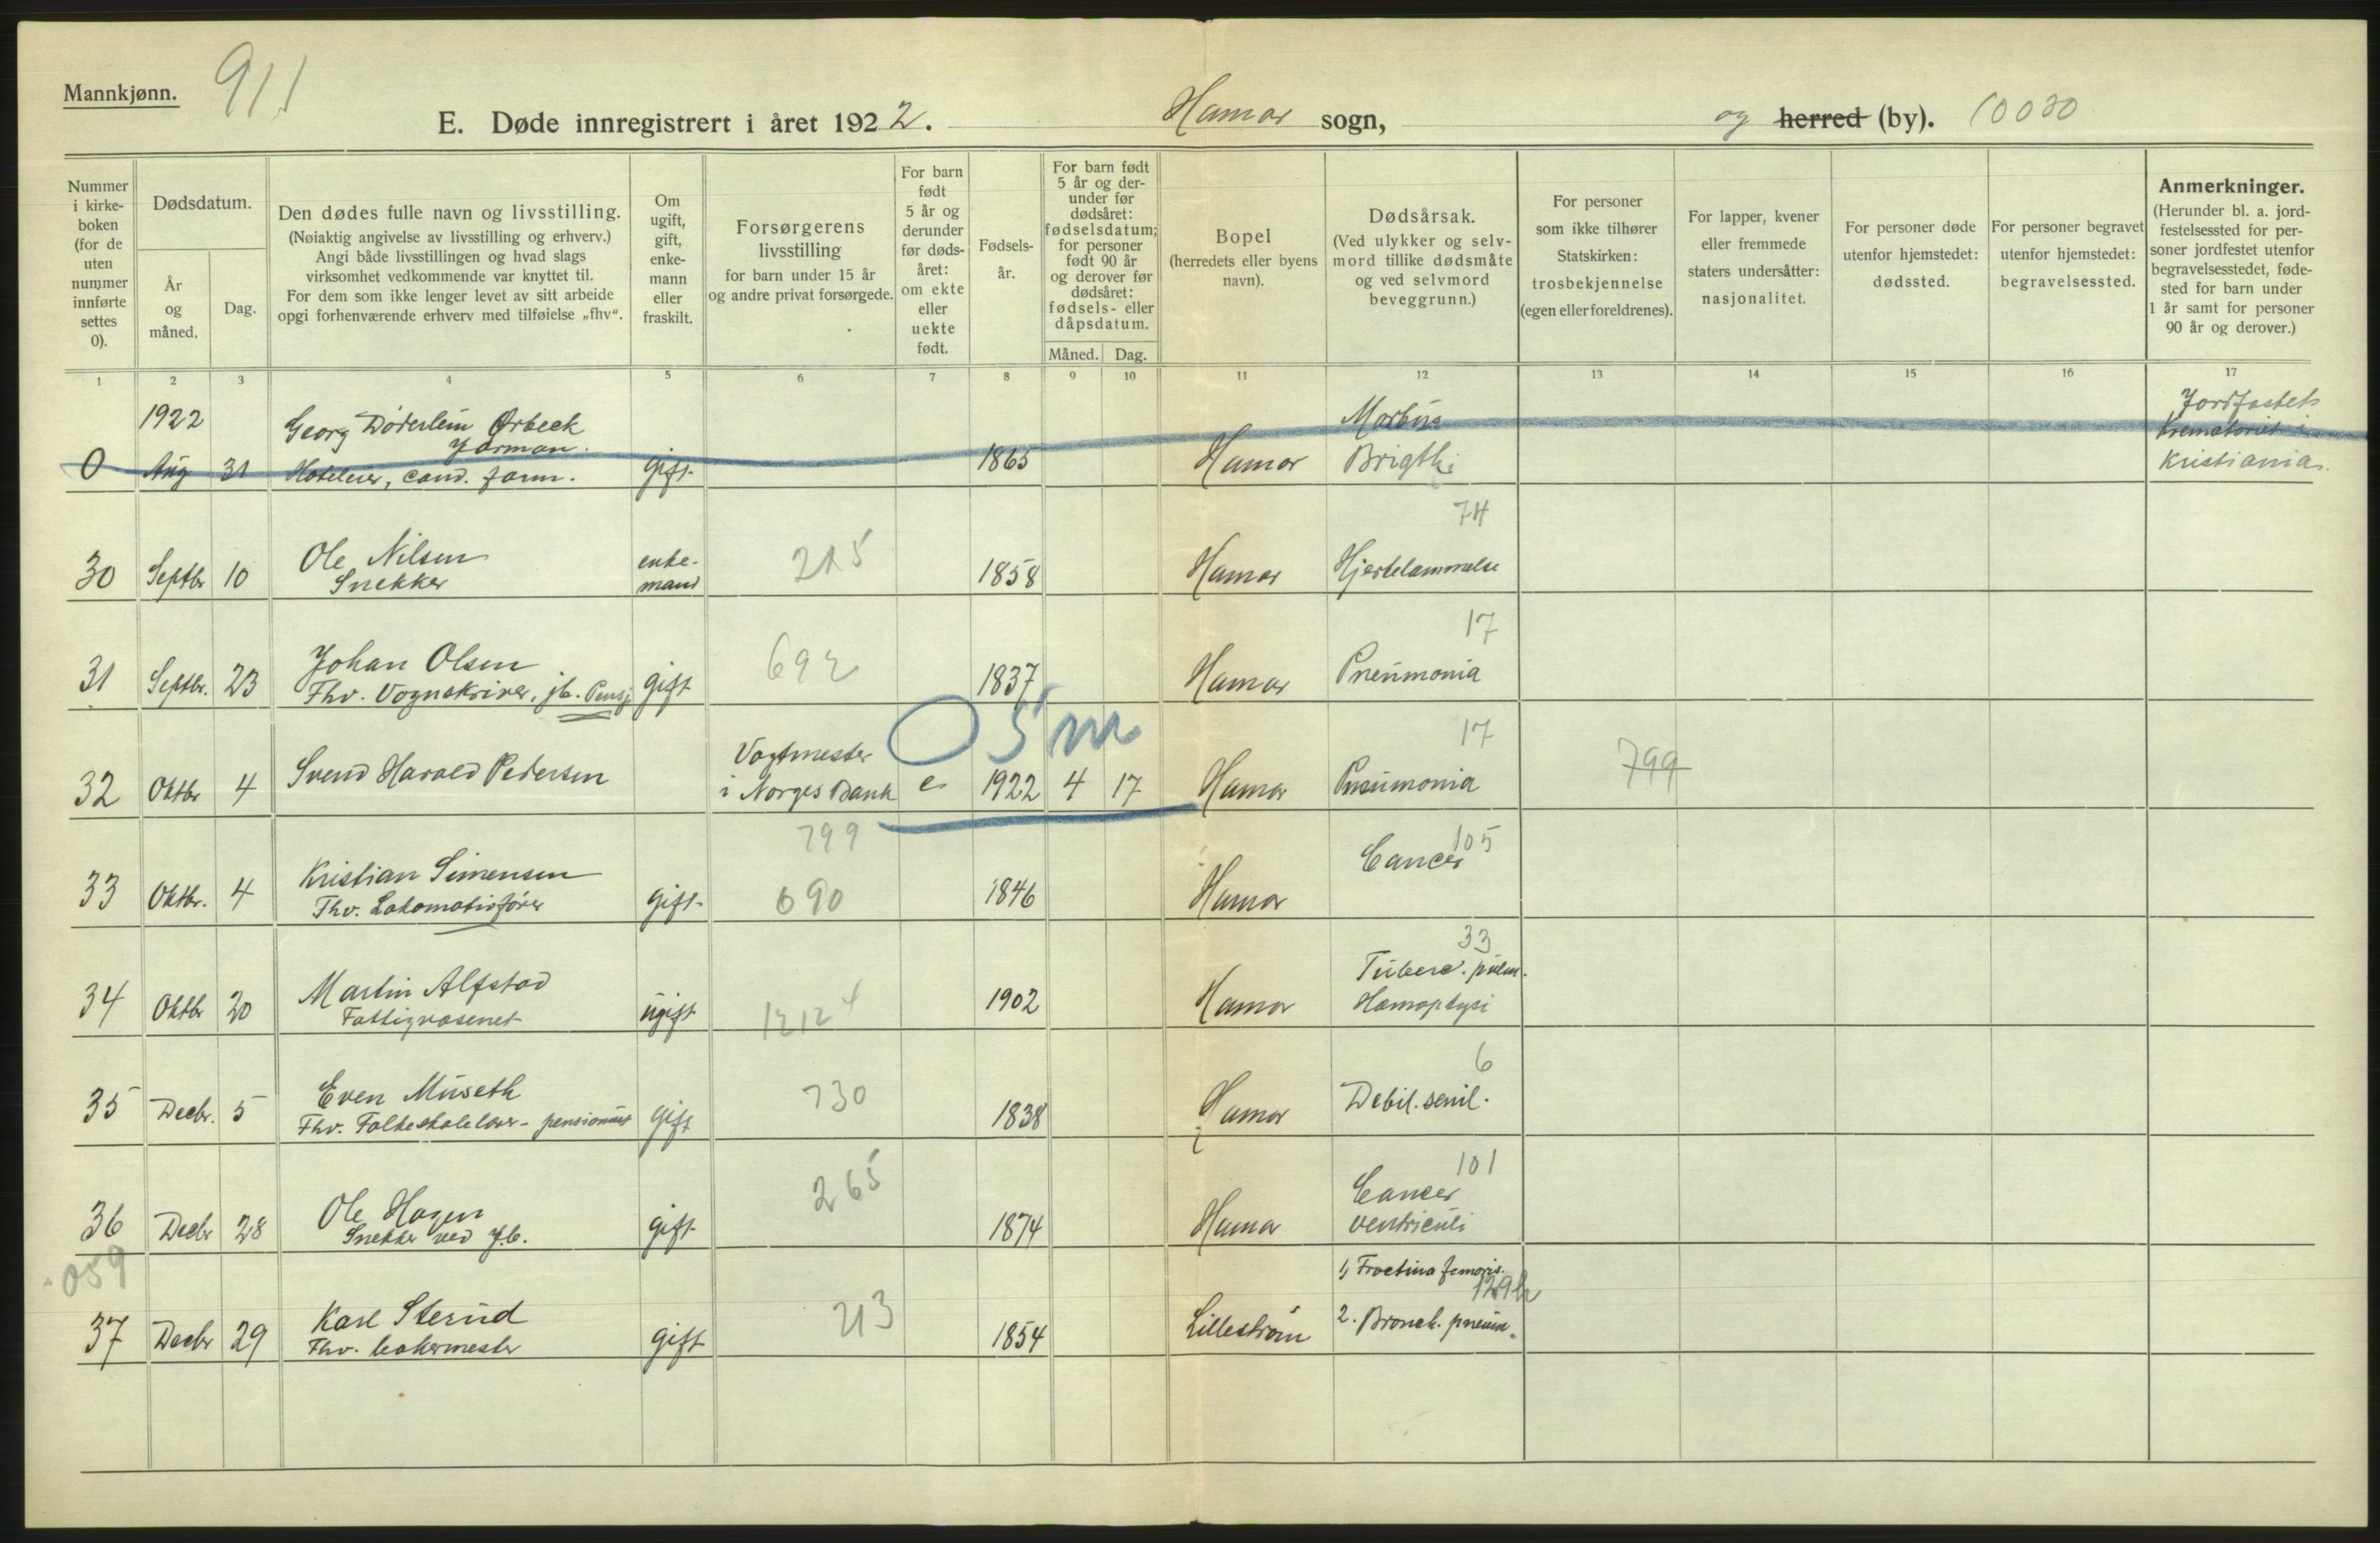 Mannkjønn.
911
E. Døde innregistrert i året 1922. Hamar sogn, og herred (by). 10030
Nummer
i kirke-
boken
(for de
uten
nummer
innførte
settes
0).
Dødsdatum.
År
og
måned.
Dag.
Den dødes fulle navn og livsstilling.
(Nøiaktig angivelse av livsstilling og erhverv.)
Angi både livsstillingen og hvad slags
virksomhet vedkommende var knyttet til.
For dem som ikke lenger levet av sitt arbeide
opgi forhenværende erhverv med tilføielse „fhv“.
Om
ugift,
gift,
enke-
mann
eller
fraskilt.
Forsørgerens
livsstilling
for barn under 15 år
og andre privat forsørgede.
For barn
født
5 år og
derunder
før døds-
året:
om ekte
eller
uekte
født.
Fødsels-
år.
For barn født
5 år og der-
under før
dødsåret:
fødselsdatum;
for personer
født 90 år
og derover før
dødsåret:
fødsels- eller
dåpsdatum.
Måned. Dag.
Bopel
(herredets eller byens
navn).
Dødsårsak.
(Ved ulykker og selv-
mord tillike dødsmåte
og ved selvmord
beveggrunn.)
For personer
som ikke tilhører
Statskirken:
trosbekjennelse
(egen eller foreldrenes).
For lapper, kvener
eller fremmede
staters undersåtter:
nasjonalitet.
For personer døde
utenfor hjemstedet:
dødssted.
For personer begravet
utenfor hjemstedet:
begravelsessted.
Anmerkninger.
(Herunder bl. a. jord-
festelsessted for per-
soner jordfestet utenfor
begravelsesstedet, føde-
sted for barn under
1 år samt for personer
90 år og derover.)
1 2 3 4 5 6 7 8 9 10 11 12 13 14 15 16 17
1922 Georg Döderlein Ørbeck Morbus Jordfestet
Jorman. Krematoriet i
0 Aug 31 Hoteleier, cand. farm. gift 1865 Hamar Brigthi Kristiania.
74
Ole Nilsen enke- 215
30 Septbr 10 Snekker mand 1858 Hamar Hjertelammelse
17
Johan Olsen 692
31 Septbr. 23 Fhv. Vognskriver, jb. Pensj gift 1837 Hamar Pneumonia
0 5 m 17
Vagtmester
32 Oktbr 4 Svend Harald Pedersen i Norges Bank e. 1922 4 17 Hamar Pneumonia 799
799 105
Kristian Simensen Cancer
33 Oktbr. 4 Fhv. Lokomotivfører gift 690 1846 Hamar
33
Martin Alfstad Tuberc. pulm.
34 Oktbr 20 Fattigvæsenet ugift 1212 4 1902 Hamar Hæmoptysi
6
Even Museth 730
35 Decbr. 5 Fhv. Folkeskolelærer - pensionist gift 1838 Hamar Debil. senil.
101
Ole Hagen 265 Cancer
36 Decbr 28 Snekker ved J.b. gift 1874 Hamar ventriculi
059 1) Fractura femoris. 129h
Karl Sterud 213
37 Decbr 29 Fhv. bakermester gift 1854 Lillestrøm 2. Bronch. pneum.